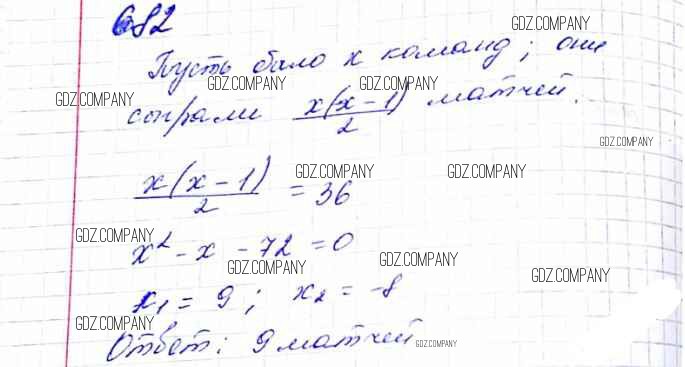 682
GDZ.COMPANY
Пусть было x команд; они
GDZ.COMPANY GDZ.COMPANY GDZ.COMPANY
сыграли x(x-1)/2 матчей.
GDZ.COMPANY
x(x-1)/2 = 36
GDZ.COMPANY GDZ.COMPANY
GDZ.COMPANY
x² - x - 72 = 0
GDZ.COMPANY GDZ.COMPANY
GDZ.COMPANY
x₁ = 9; x₂ = -8
GDZ.COMPANY
Ответ: 9 матчей
GDZ.COMPANY